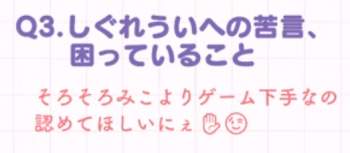 Q3.しぐれういへの苦言、
困っていること
そろそろみこよりゲーム下手なの
認めてほしいにぇ✋😉